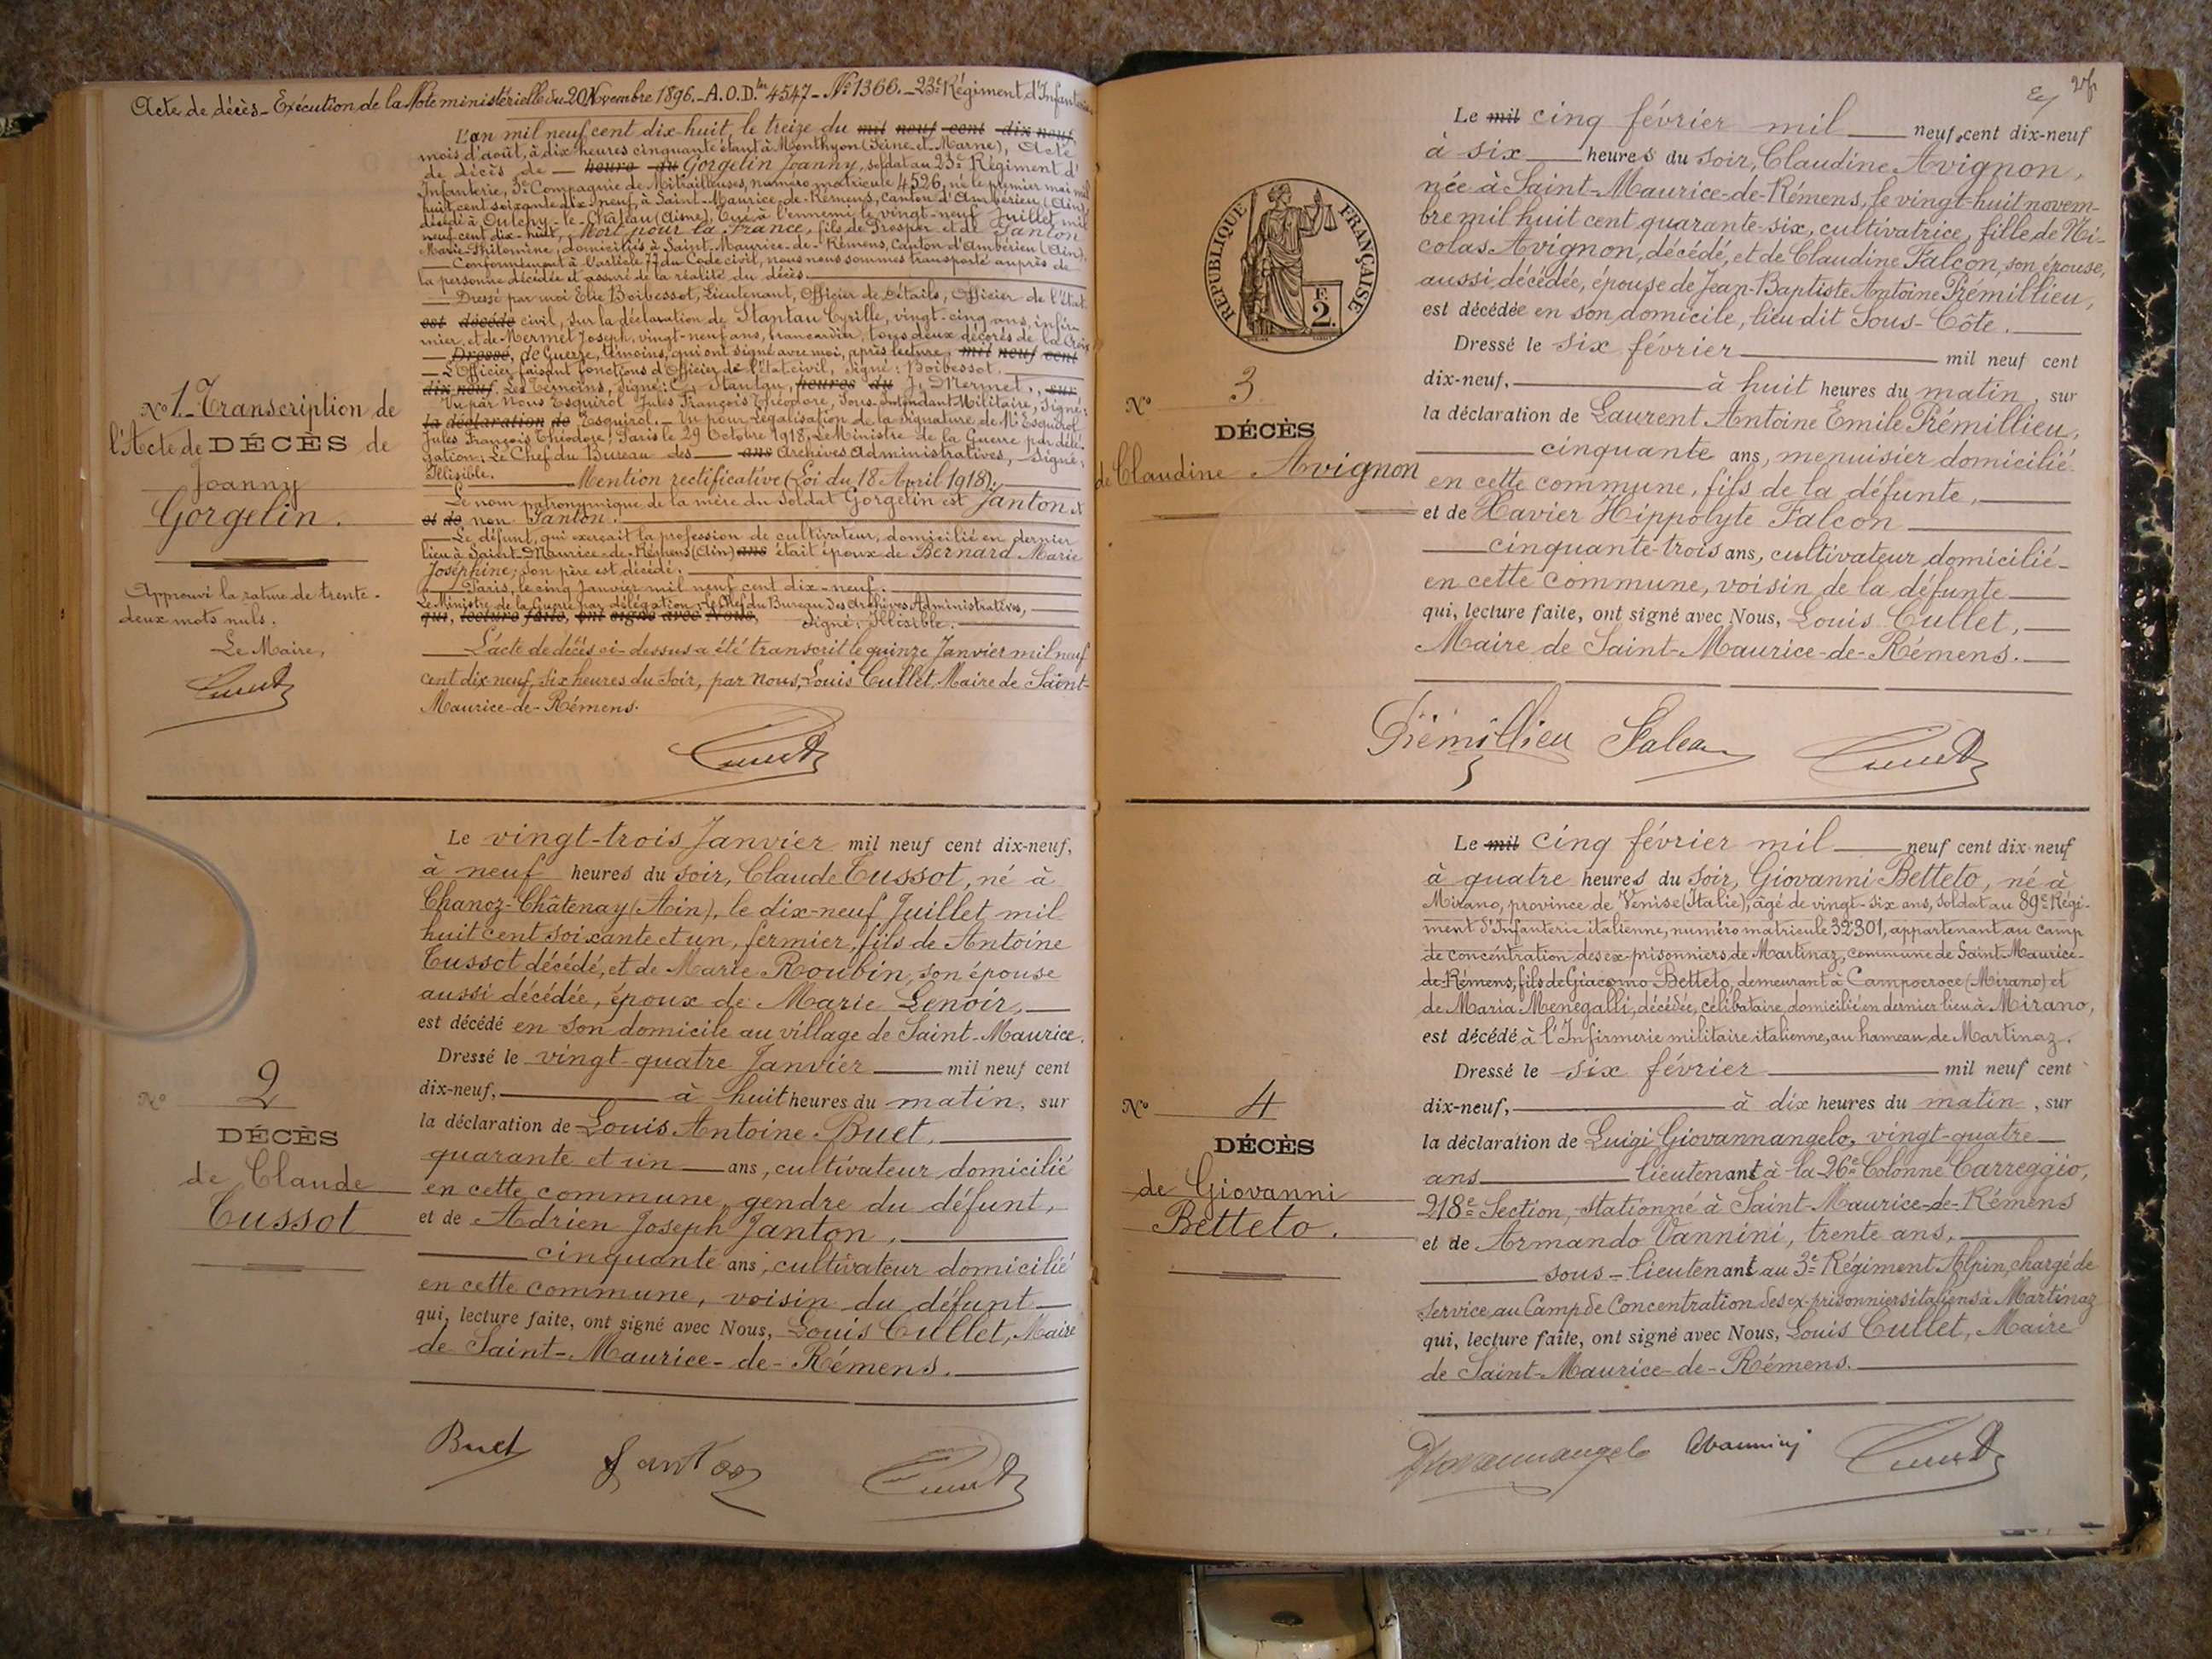 Acte de décès - Exécution de la Note ministérielle du 20 Novembre 1896. - A.O.D. 4547 - N° 1366. - 23e Régiment d'Infanterie
L'an mil neuf cent dix-huit, le treize du mil neuf cent dix neuf
mois d'août, à dix heures cinquante étant à Monthyon (Seine-et-Marne), Acte
de décès de — heure du Gorgelin Joanny, soldat au 23e Régiment d'
Infanterie, 3e Compagnie de Mitrailleuses, numéro matricule 4526, né le premier mai mil
huit cent soixante dix-neuf, à Saint-Maurice-de-Rémens, canton d'Ambérieu (Ain),
décédé à Oulchy-le-Château (Aisne), tué à l'ennemi le vingt-neuf Juillet mil
neuf cent dix-huit, Mort pour la France, fils de Prosper et de Tanton
Marie-Philomène, domiciliés à Saint-Maurice-de-Rémens, Canton d'Ambérieu (Ain),
Conformément à l'article 77 du Code civil, nous nous sommes transporté auprès de
la personne décédée et assuré de la réalité du décès.
Dressé par moi Elie Boibessot, Lieutenant, Officier de Détails, Officier de l'état
est décédé civil, sur la déclaration de Stantau Cyrille, vingt-cinq ans, infir-
mier, et de Mermet Joseph, vingt-neuf ans, brancardier, tous deux décorés de la Croix
Dressé, de Guerre, témoins, qui ont signé avec moi, après lecture, mil neuf cent
L'Officier faisant fonctions d'Officier de l'état civil, Signé: Boibessot.
dix-neuf. Les Témoins, Signé: C. Stantau, heures du J. Mermet, sur
Vu par Nous Esquirol Jules François Théodore, Sous-Intendant Militaire, Signé:
la déclaration de Esquirol. - Vu pour Légalisation de la Signature de Mr Esquirol
Jules François Théodore, Paris le 29 Octobre 1918, Le Ministre de la Guerre par délé-
gation: Le Chef du Bureau des — ans Archives Administratives, Signé;
Illisible. Mention rectificative (Loi du 18 Avril 1918):
Le nom patronymique de la mère du Soldat Gorgelin est Janton et
et de non Tanton.
Le défunt, qui exerçait la profession de cultivateur, domicilié en dernier
lieu à Saint-Maurice-de-Rémens (Ain) ans était époux de Bernard Marie
Joséphine; son père est décédé.
Paris, le cinq Janvier mil neuf cent dix-neuf.
Le Ministre de la Guerre par délégation, Le Chef du Bureau des Archives Administratives,
qui, lecture faite, ont signé avec Nous, Signé: Illisible.
L'acte de décès ci-dessus a été transcrit le quinze Janvier mil neuf
cent dix neuf, six heures du soir, par Nous, Louis Cullet, Maire de Saint-
Maurice-de-Rémens.
N° 1. Transcription de
l'Acte de DÉCÈS de
Joanny
Gorgelin.
Approuvé la rature de trente-
deux mots nuls.
Le Maire,
Cullet
Cullet
Le vingt-trois Janvier mil neuf cent dix-neuf,
à neuf heures du soir, Claude Cussot, né à
Chanoz-Châtenay (Ain), le dix-neuf Juillet mil
huit cent soixante et un, fermier, fils de Antoine
Cussot décédé, et de Marie Roubin, son épouse
aussi décédée, époux de Marie Lenoir,
est décédé en son domicile au village de Saint-Maurice.
Dressé le vingt-quatre Janvier mil neuf cent
dix-neuf, à huit heures du matin, sur
la déclaration de Louis Antoine Buet,
quarante et un ans, cultivateur domicilié
en cette commune, gendre du défunt,
et de Adrien Joseph Janton,
cinquante ans, cultivateur domicilié
en cette commune, voisin du défunt
qui, lecture faite, ont signé avec Nous, Louis Cullet, Maire
de Saint-Maurice-de-Rémens.
N° 2
DÉCÈS
de Claude
Cussot
Buet Janton Cullet
Le mil cinq février mil neuf cent dix-neuf
à six heures du soir, Claudine Avignon,
née à Saint-Maurice-de-Rémens, le vingt-huit novem-
bre mil huit cent quarante-six, cultivatrice, fille de Ni-
colas Avignon, décédé, et de Claudine Falcon, son épouse,
aussi décédée, épouse de Jean-Baptiste Antoine Prémillieu,
est décédée en son domicile, lieu dit Sous-Côte.
Dressé le six février mil neuf cent
dix-neuf, à huit heures du matin, sur
la déclaration de Laurent Antoine Emile Prémillieu,
cinquante ans, menuisier domicilié
en cette commune, fils de la défunte,
et de Xavier Hippolyte Falcon
cinquante-trois ans, cultivateur domicilié
en cette commune, voisin de la défunte
qui, lecture faite, ont signé avec Nous, Louis Cullet,
Maire de Saint-Maurice-de-Rémens.
RÉPUBLIQUE FRANÇAISE
F.
2.
N° 3
DÉCÈS
de Claudine Avignon
Prémillieu Falcon Cullet
Le mil cinq février mil neuf cent dix-neuf
à quatre heures du soir, Giovanni Betteto, né à
Mirano, province de Venise (Italie), âgé de vingt-six ans, soldat au 89e Régi-
ment d'Infanterie italienne, numéro matricule 32301, appartenant au camp
de concentration des ex-prisonniers de Martinaz, commune de Saint-Maurice-
de-Rémens, fils de Giacomo Betteto, demeurant à Campocroce (Mirano) et
de Maria Menegalli, décédée, célibataire, domicilié en dernier lieu à Mirano,
est décédé à l'Infirmerie militaire italienne, au hameau de Martinaz.
Dressé le six février mil neuf cent
dix-neuf, à dix heures du matin, sur
la déclaration de Luigi Giovannangelo, vingt-quatre
ans lieutenant à la 26e Colonne Carreggio,
218e Section, stationné à Saint-Maurice-de-Rémens
et de Armando Vannini, trente ans,
sous-lieutenant au 3e Régiment Alpin, chargé de
service au Camp de Concentration des ex-prisonniers italiens à Martinaz
qui, lecture faite, ont signé avec Nous, Louis Cullet, Maire
de Saint-Maurice-de-Rémens.
N° 4
DÉCÈS
de Giovanni
Betteto.
Giovannangelo AVannini Cullet